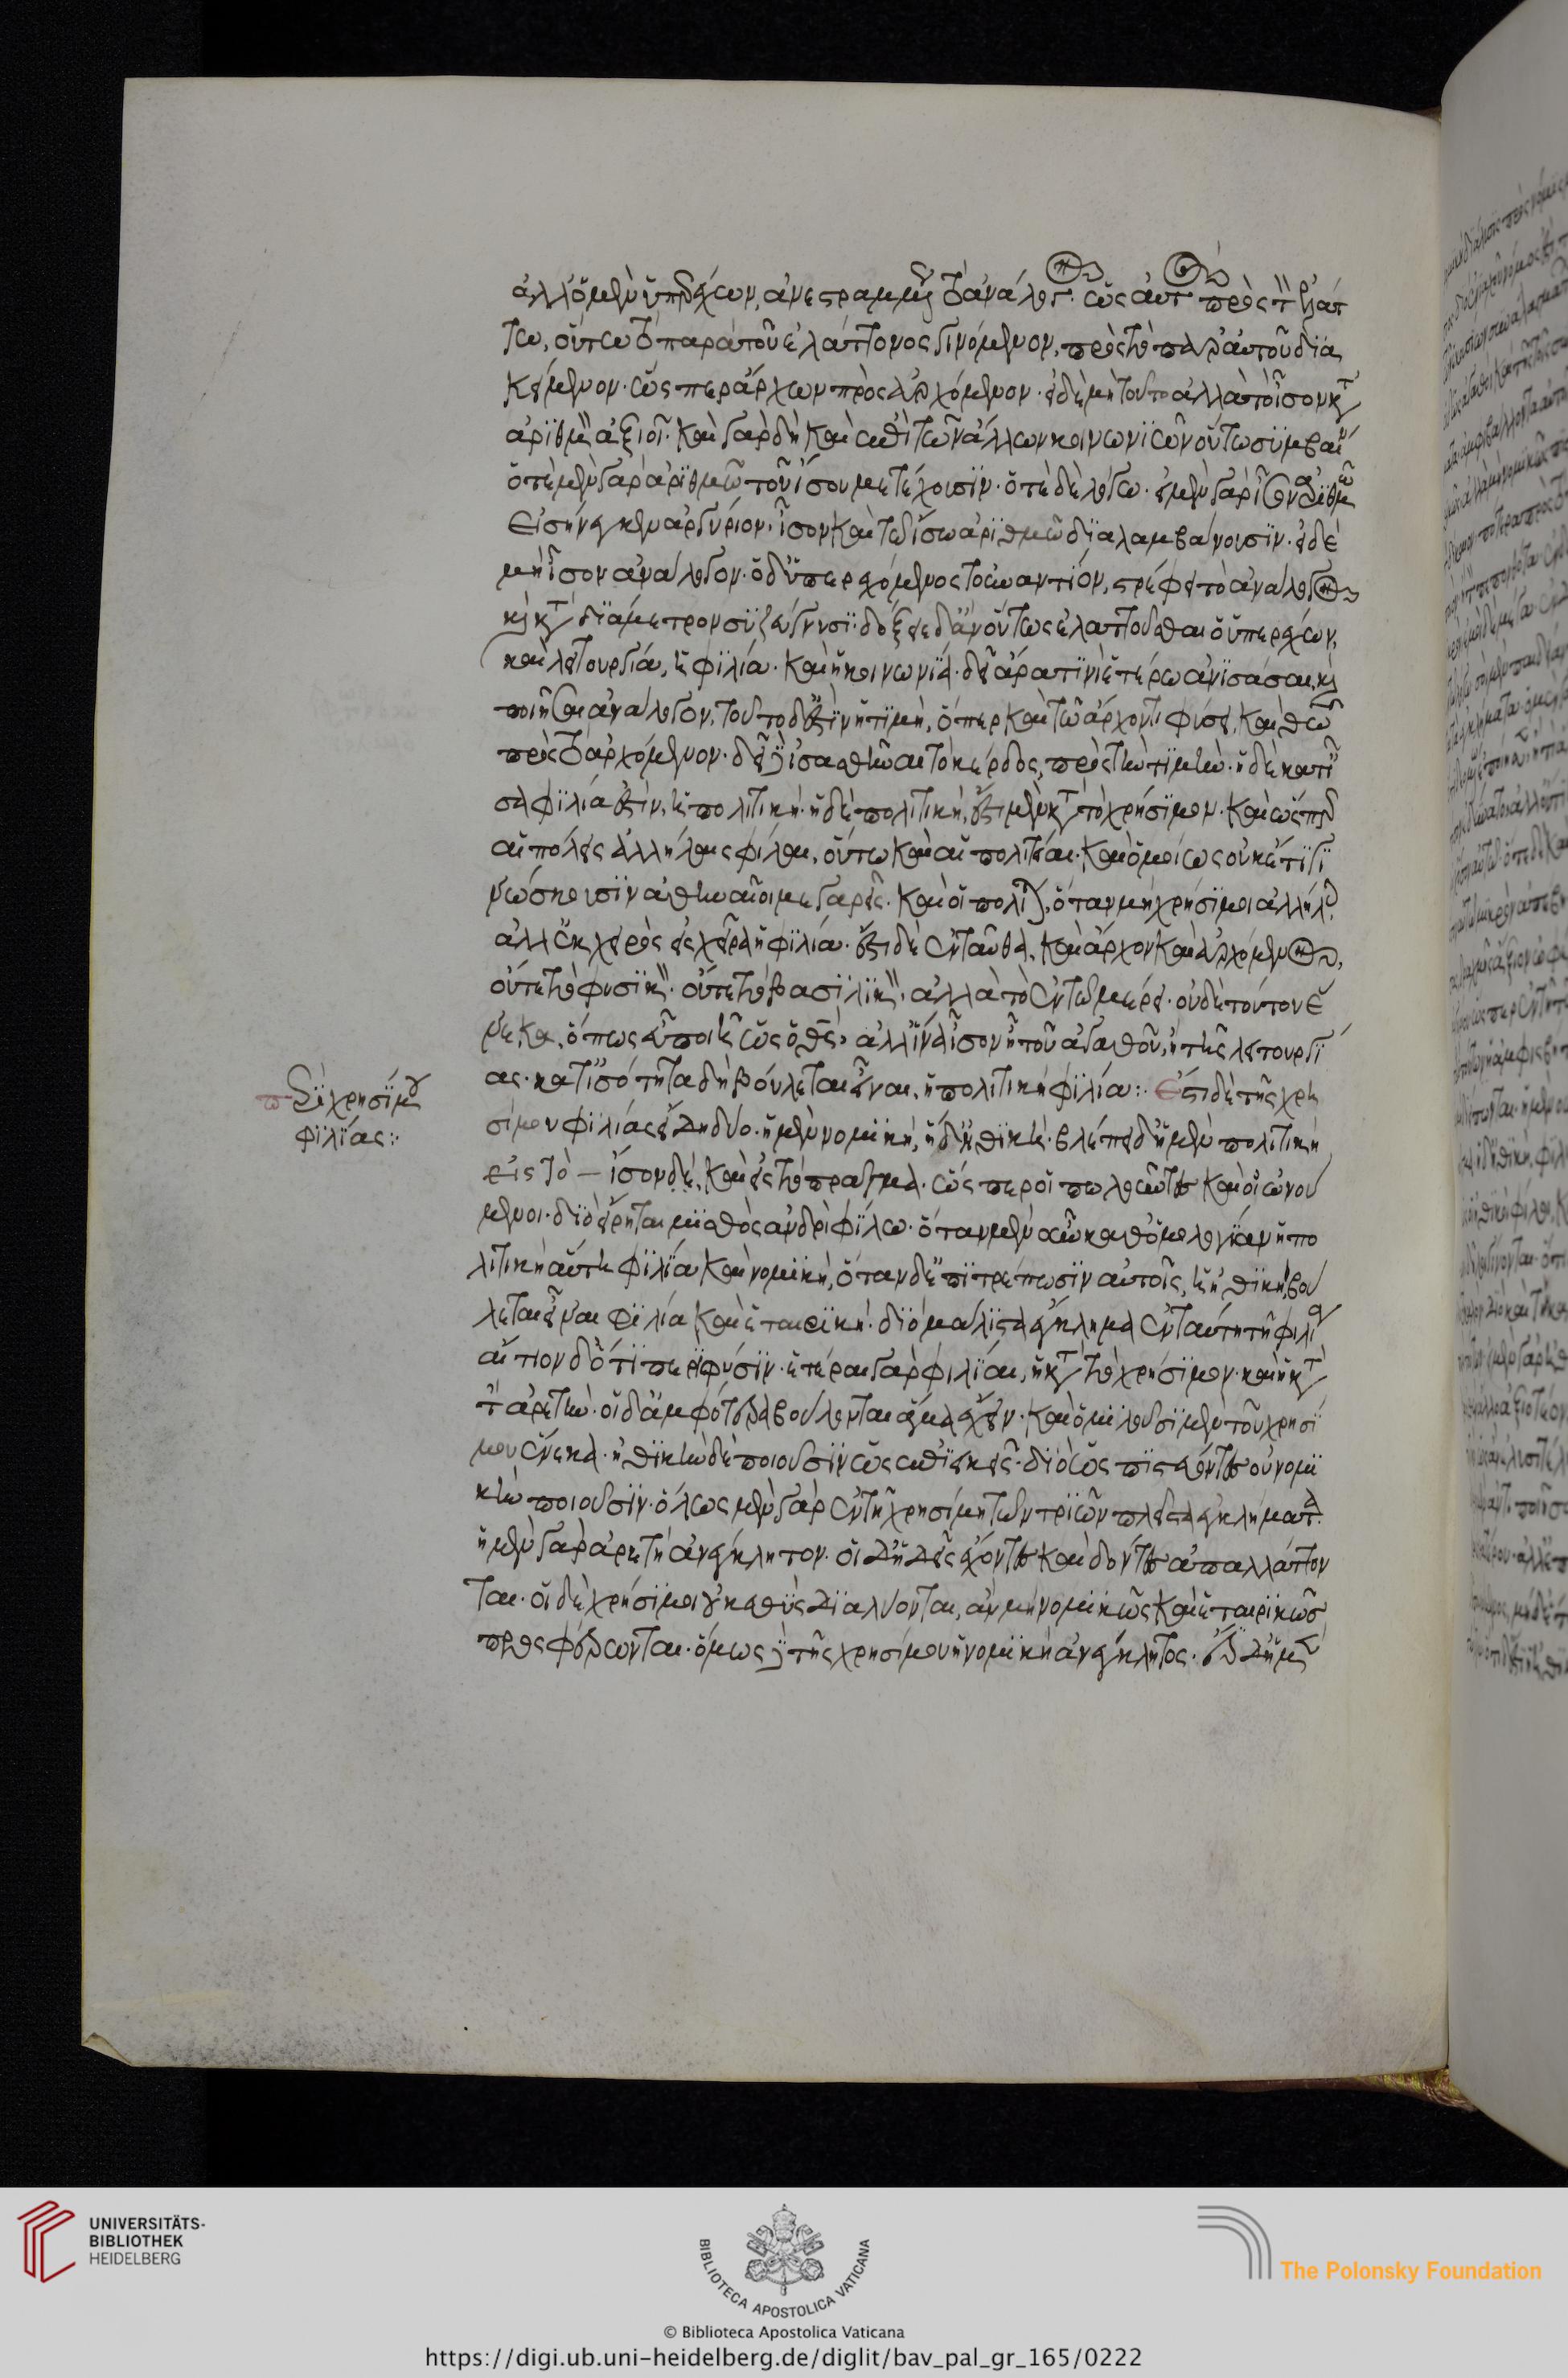 ἀλλ' ὁ μὲν ὑπερέχων, ἀνεστραμμένως τὸ ἀνάλογον· ὡς αὐτὸς πρὸς τὸν ἐλάτ
τω, οὕτω τὸ παρὰ τοῦ ἐλάττονος γινόμενον, πρὸς τὸ παρ' αὐτοῦ δια
κείμενον· ὥσπερ ἄρχων πρὸς ἀρχόμενον· εἰ δὲ μὴ τοῦτο ἀλλὰ τὸ ἴσον κατ'
ἀριθμὸν ἀξιοῖ· καὶ γὰρ δὴ καὶ ἐπὶ τῶν ἄλλων κοινωνιῶν οὕτω συμβαίνει
ὁτὲ μὲν γὰρ ἀριθμῷ τοῦ ἴσου μετέχουσιν· ὁτὲ δὲ λόγω· εἰ μὲν γὰρ ἴσον ἀριθμῷ
εἰσήνεγκεν ἀργύριον, ἴσον καὶ τῷ ἴσω ἀριθμῷ διαλαμβάνουσιν· εἰ δὲ
μὴ ἴσον ἀνάλογον· ὁ δ' ὑπερεχόμενος τοὐναντίον, στρέφει τὸ ἀνάλογον
καὶ κατὰ διάμετρον συζεύγνυσι· δόξειε δ' ἂν οὕτως ἐλαττοῦσθαι ὁ ὑπερέχων,
καὶ λειτουργία, ἡ φιλία· καὶ ἡ κοινωνία· δεῖ ἄρα τινὶ ἑτέρω ἀνισάσαι, καὶ
ποιῆσαι ἀνάλογον, τοῦτο δ' ἐστὶν ἡ τιμή, ὅπερ καὶ τῶ ἄρχοντι φύσει, καὶ θεῶ
πρὸς τὸ ἀρχόμενον· δεῖ δὲ ἰσασθῆναι τὸ κέρδος, πρὸς τὴν τιμήν· ἡ δὲ κατ' ἴ
σα φιλία ἐστὶν, ἡ πολιτική· ἡ δὲ πολιτική, ἔστι μὲν κατὰ τὸ χρήσιμον· καὶ ὥσπερ
αἱ πόλεις ἀλλήλαις φίλαι, οὕτω καὶ αἱ πολιτεῖαι· καὶ ὁμοίως οὐκέτι γι
νώσκουσιν ἀθηναῖοι μεγαρεῖς· καὶ οἱ πολῖται, ὅταν μὴ χρήσιμοι ἀλλήλοις
ἀλλ' ἐκ χειρὸς εἰς χεῖρα ἡ φιλία· ἔστι δὲ ἐνταῦθα, καὶ ἄρχον καὶ ἀρχόμενον,
οὔτε τὸ φυσικὸν· οὔτε τὸ βασιλικὸν· ἀλλὰ τὸ ἐν τῷ μέρει· οὐδὲ τούτου ἕ
νεκα, ὅπως εὖ ποιῇ ὡς ὁ θεός· ἀλλ' ἵνα ἴσον ᾖ τοῦ ἀγαθοῦ, ἢ τῆς λειτουργί
ας· κατ' ἰσότητα δὴ βούλεται εἶναι, ἡ πολιτικὴ φιλία:· Ἔστι δὲ τῆς χρη
σίμου φιλίας εἴδη δύο· ἡ μὲν νομικὴ, ἡ δ' ἠθική· βλέπει δ' ἡ μὲν πολιτικὴ
εἰς τὸ – ἴσον δέ, καὶ εἰς τὸ πρᾶγμα· ὥσπερ οἱ πωλοῦντες καὶ οἱ ὠνού
μενοι· διὸ εἴρηται μισθὸς ἀνδρὶ φίλω· ὅταν μὲν οὖν καθ' ὁμολογίαν ἡ πο
λιτικὴ αὕτη φιλία καὶ νομική, ὅταν δ' ἐπιτρέπωσιν αὐτοῖς, ἡ ἠθικὴ βού
λεται εἶναι φιλία καὶ ἑταιρική· διὸ μάλιστα ἔγκλημα ἐν ταύτη τῇ φιλία
αἴτιον δ' ὅτι παρὰ φύσιν· ἕτεραι γὰρ φιλίαι, ἡ κατὰ τὸ χρήσιμον· καὶ ἡ κατὰ
τὴν ἀρετήν· οἱ δ' ἀμφότερα βούλονται ἅμα ἔχειν· καὶ ὁμιλοῦσι μὲν τοῦ χρησί
μου ἕνεκα· ἠθικὴν δὲ ποιοῦσιν ὡς ἐπιεικεῖς· διὸ ὡς πιστεύοντες οὐ νομι
κὴν ποιοῦσιν· ὅλως μὲν γὰρ ἐν τῇ χρησίμη τῶν τριῶν πλεῖστα ἐγκλήματα·
ἡ μὲν γὰρ ἀρετὴ ἀνέγκλητον· οἱ δ' ἡδεῖς ἔχοντες καὶ δόντες ἀπαλλάττον
ται· οἱ δὲ χρήσιμοι οὐκ εὐθὺς διαλύονται, ἂν μὴ νομικῶς καὶ ἑταιρικῶς
προσφέρωνται· ὅμως δὲ τῆς χρησίμου ἡ νομικὴ ἀνέγκλητος· ἔστι δ' ἡ μὲν
περὶ χρησίμου
φιλίας:·
UNIVERSITÄTS-
BIBLIOTHEK
HEIDELBERG
BIBLIOTECA APOSTOLICA VATICANA
© Biblioteca Apostolica Vaticana
The Polonsky Foundation
https://digi.ub.uni-heidelberg.de/diglit/bav_pal_gr_165/0222